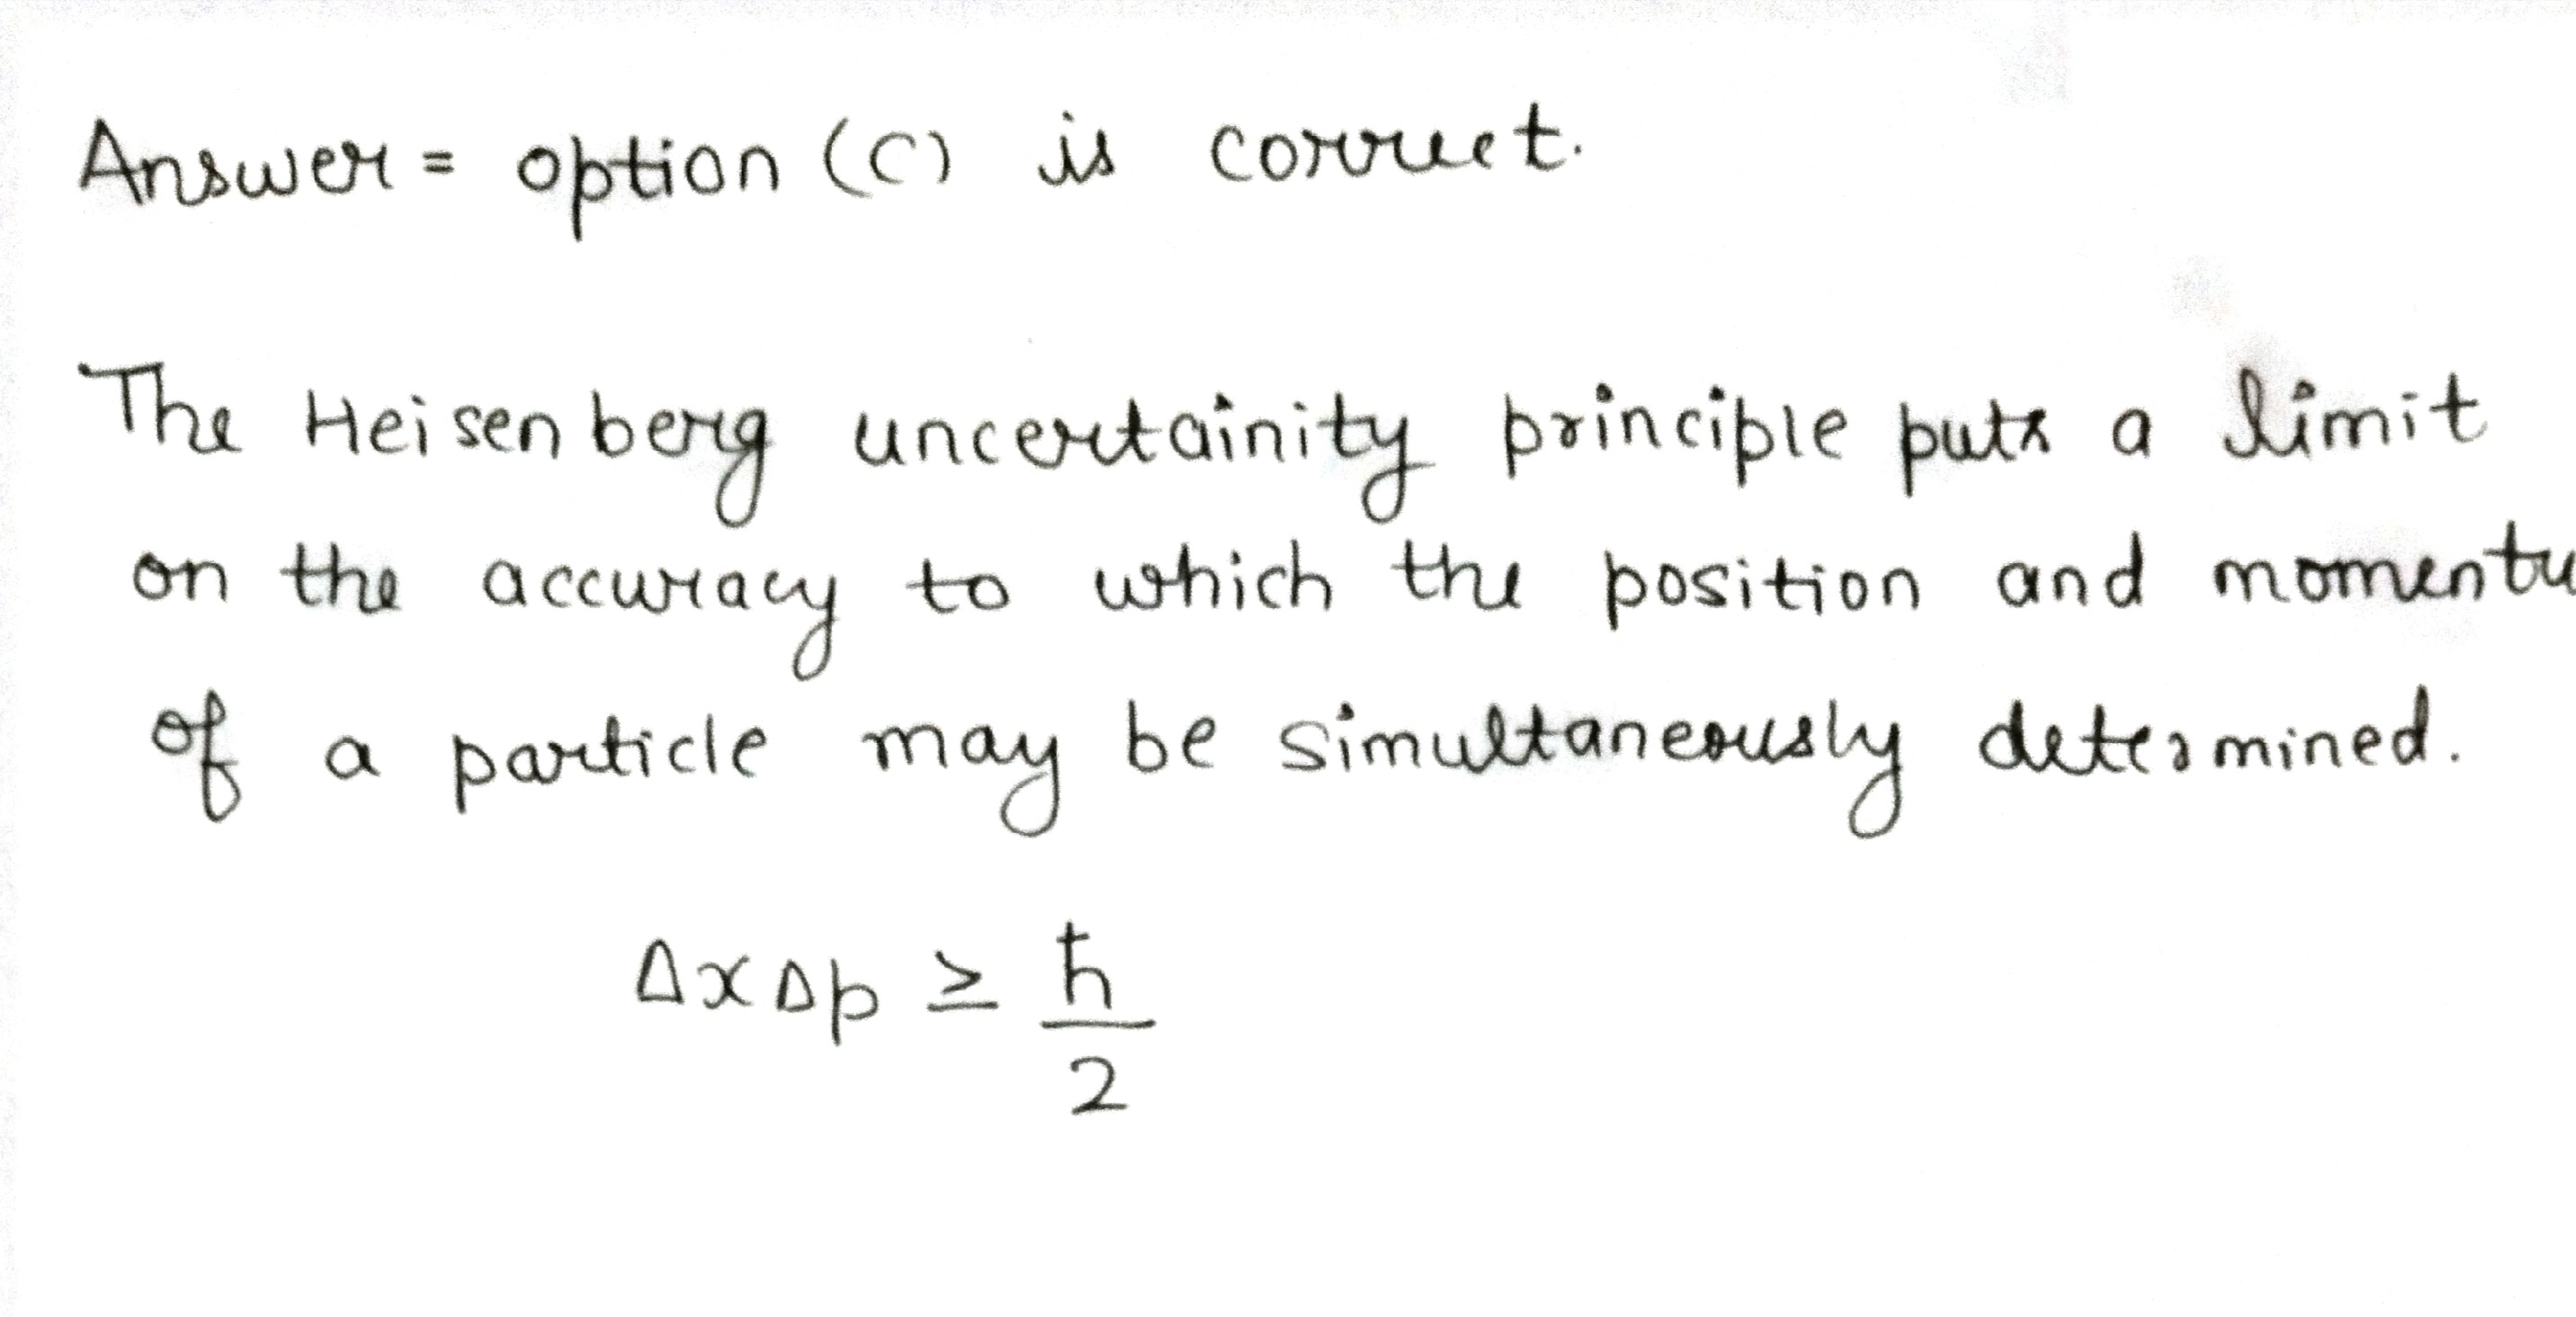 Answer = option (C) is correct.
The Heisenberg uncertainity principle puts a limit
on the accuracy to which the position and momentu
of a particle may be simultaneously determined.
Δx Δp ≥ ħ/2